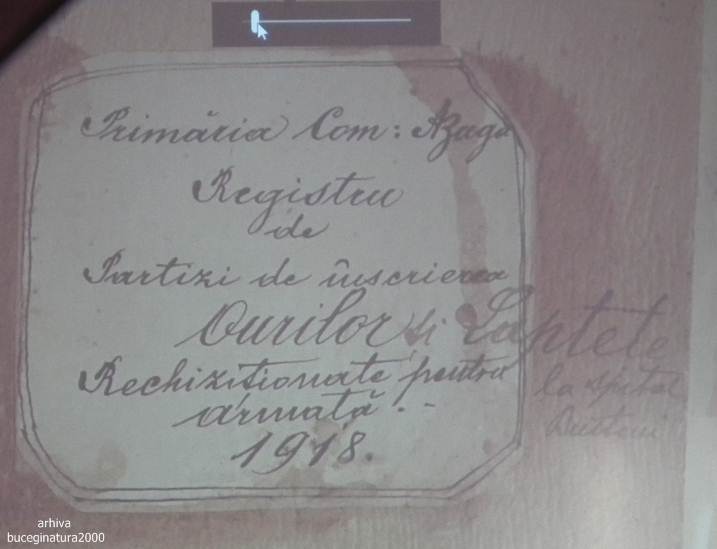 Primăria Com: Azuga
Registru
de
Partizi de înscrierea
Ourilor și Laptele
Rechiziționate pentru
armată. -
1918.
la spital
Bușteni
arhiva
buceginatura2000